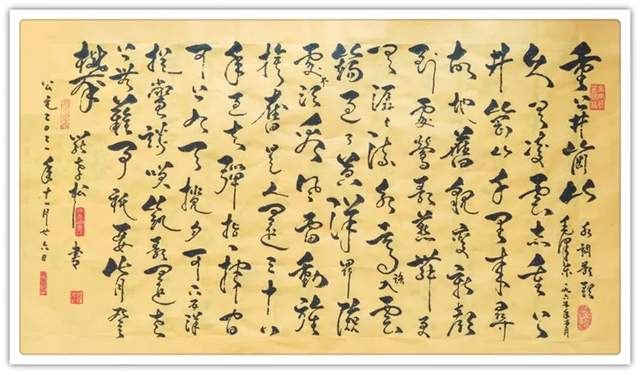 重上井崗山
水調歌頭
毛澤東一九六五年五月
久有凌雲志重上
井崗山千里來尋
故地舊貌變新顏
到處鶯歌燕舞更
有潺潺流水高路入雲
端過了黃洋界險
處不須看風雷動旌
旗奮是人寰三十八
年過去彈指一揮間
可上九天攬月可下五洋
捉鱉談笑凱歌還世
上無難事就要肯登
攀
松書
公元二〇二一年十一月廿六日